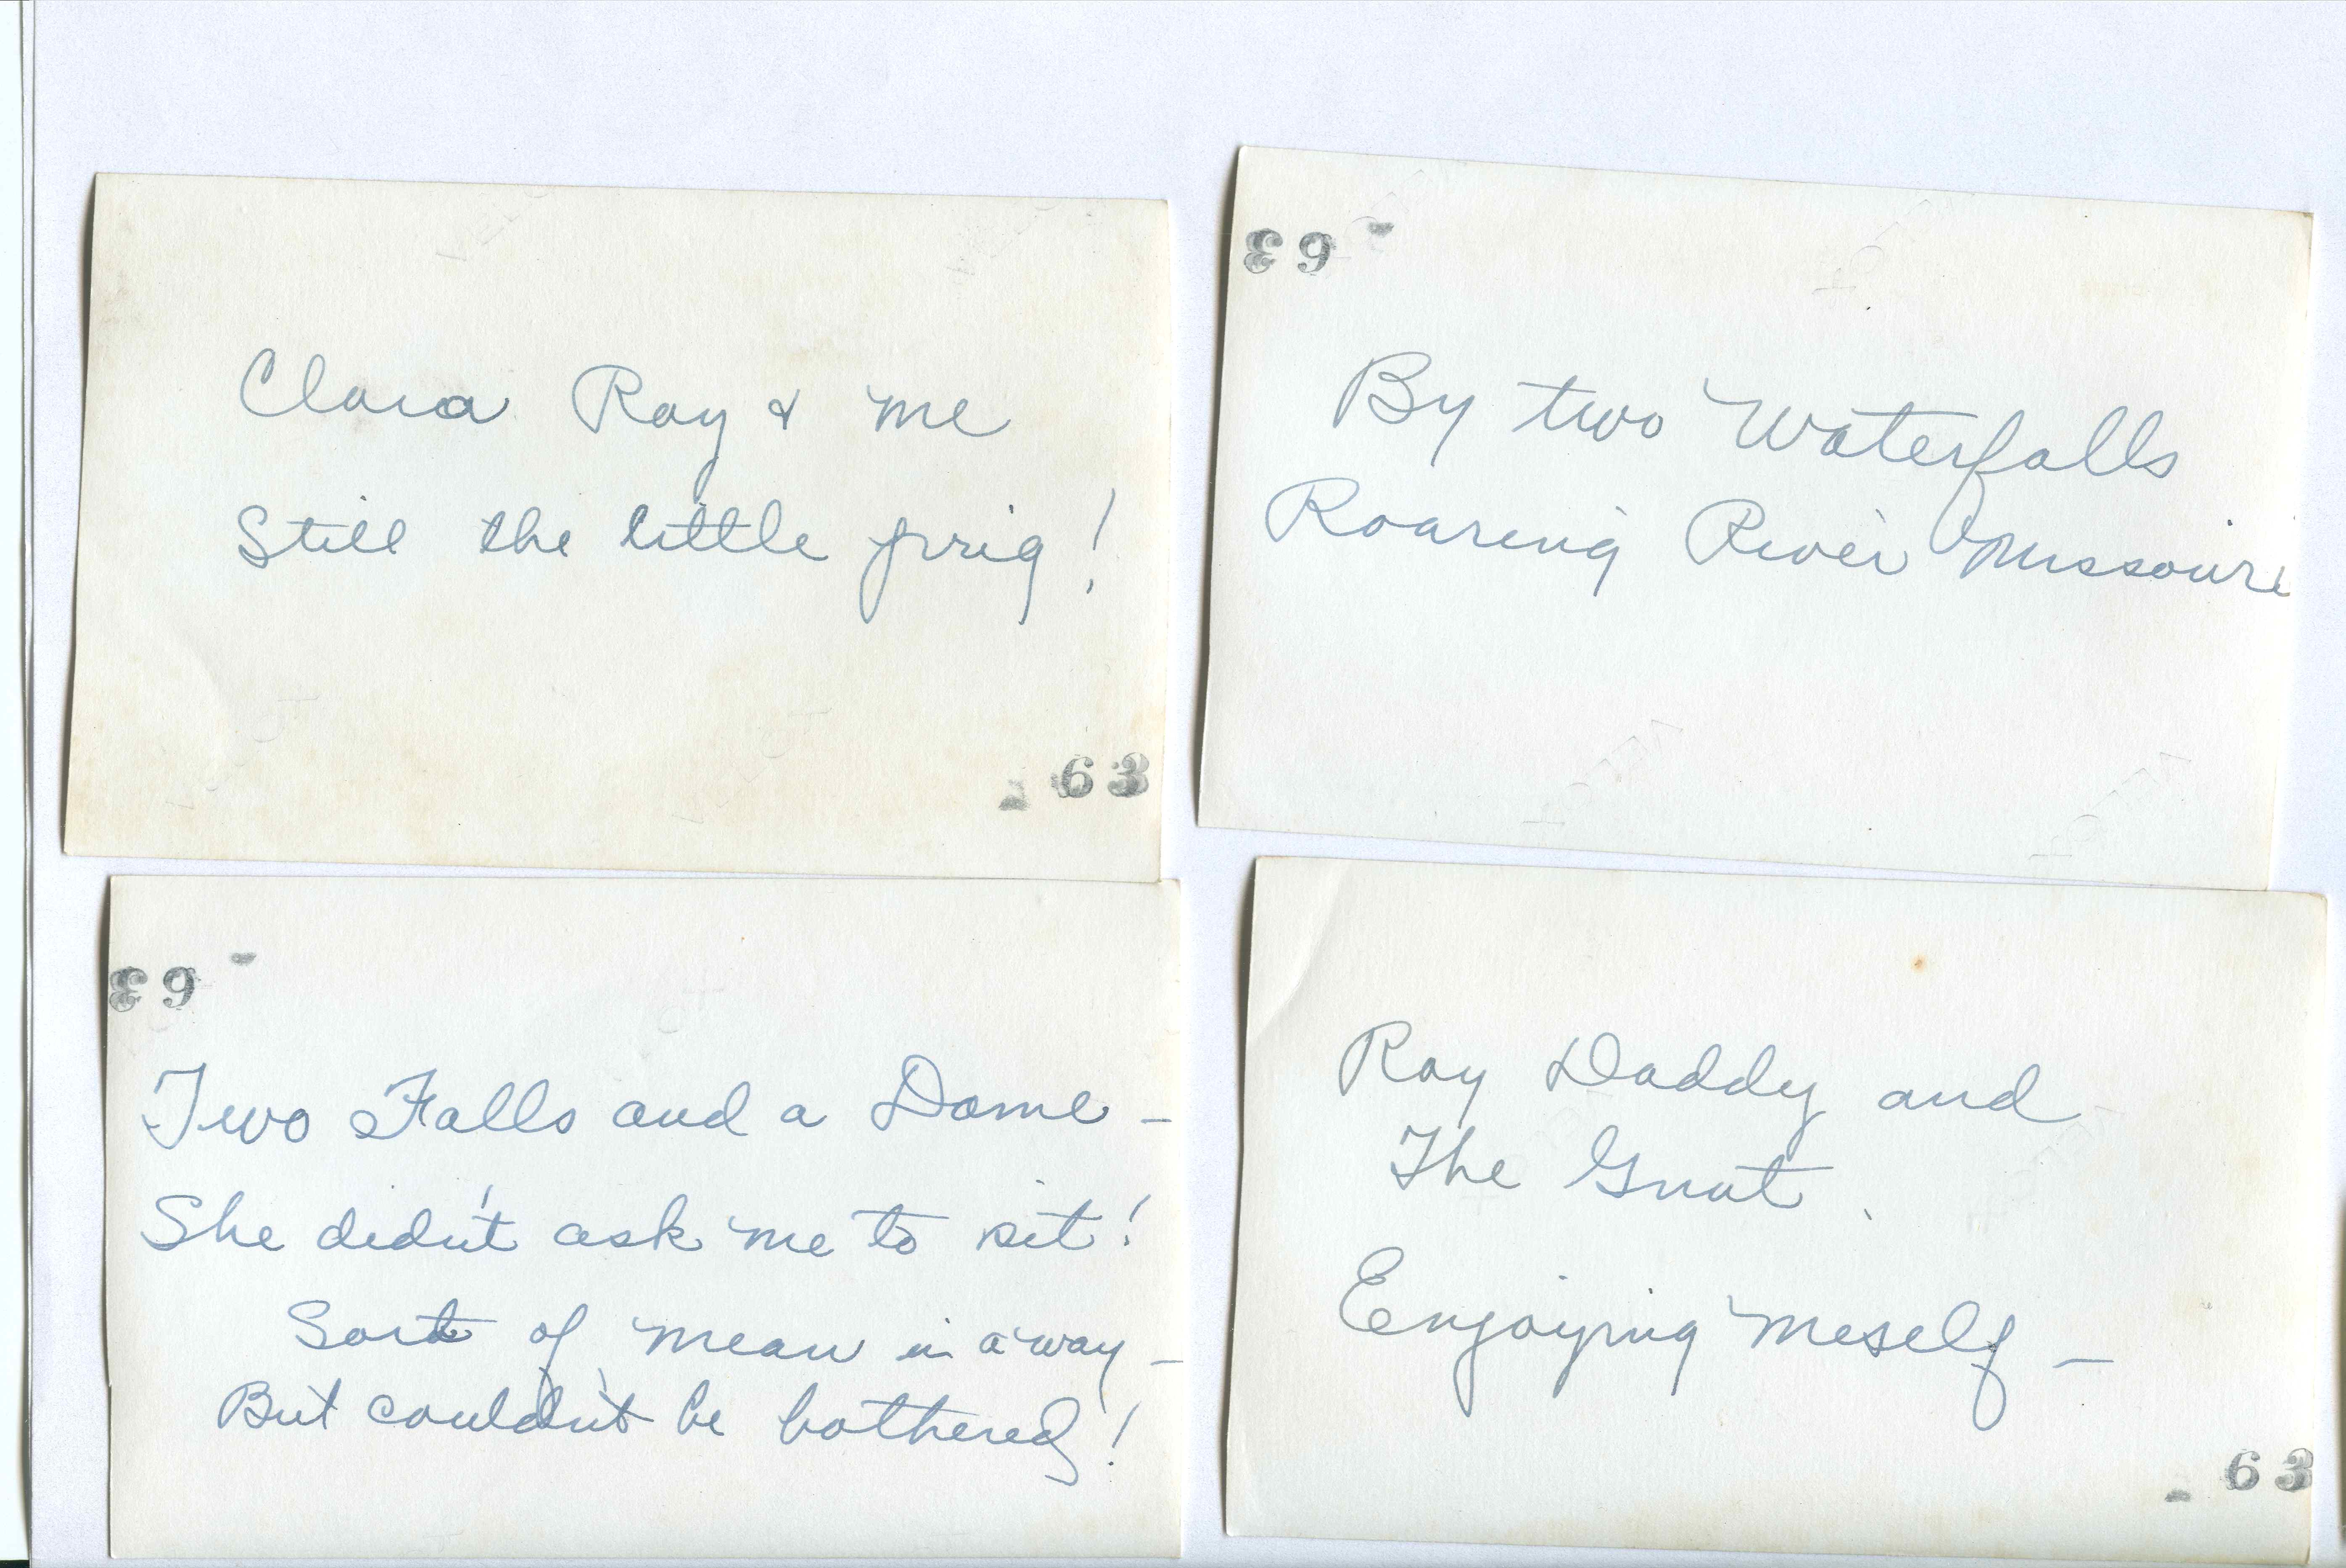 Clara Ray & me
Still the little prig!
63
63
By two Waterfalls
Roaring River Missouri
63
Two Falls and a Dame -
She didn't ask me to sit!
Sort of mean in a way -
But couldn't be bothered!
Ray Daddy and
The Gnat.
Enjoying meself -
63